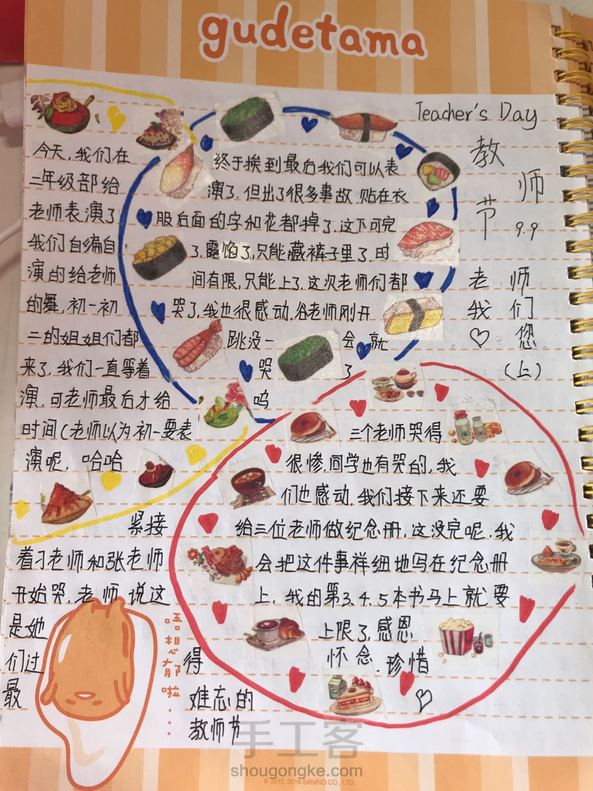 gudetama
Teacher's Day
教师节
9.9
老师
我们
♡您
(上)
今天,我们在
二年级部给
老师表演了
我们自编自
演的给老师
的舞,初一初
二的姐姐们都
来了,我们一直等着
演,可老师最后才给
时间(老师以为初一要表
演呢,哈哈
终于挨到最后我们可以表
演了,但出了很多事故,贴在衣
服后面的字和花都掉了,这下可完
了,露馅了,只能藏裤子里了,时
间有限,只能上了,这次老师们都
哭了,我也很感动,谷老师刚开
跳没一会就
哭了
呜
紧接
着刁老师和张老师
开始哭,老师说这
是她
们过得
最难忘的
教师节
三个老师哭得
很惨,同学也有哭的,我
们也感动,我们接下来还要
给三位老师做纪念册,这没完呢,我
会把这件事样细地写在纪念册
上,我的第3.4.5本书马上就要
上限了,感恩
怀念.珍惜
♡
唔想郁啦...
手工客
shougongke.com